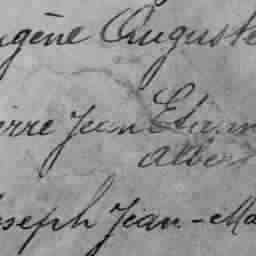 ugène Auguste
ierre Jean Etienn
Albert
oseph Jean-Ma